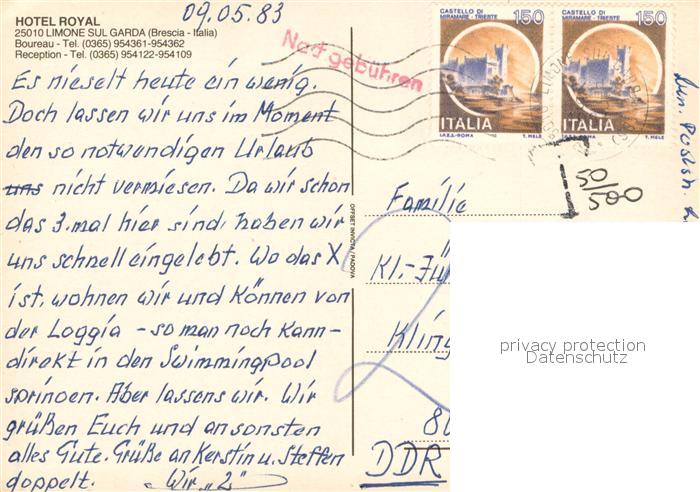 09.05.83
HOTEL ROYAL
25010 LIMONE SUL GARDA (Brescia - Italia)
Boureau - Tel. (0365) 954361-954362
Reception - Tel. (0365) 954122-954109
Es nieselt heute ein wenig.
Doch lassen wir uns im Moment
den so notwendigen Urlaub
uns nicht vermiesen. Da wir schon
das 3. mal hier sind, haben wir
uns schnell eingelebt. Wo das X
ist, wohnen wir und können von
der Loggia - so man noch kann -
direkt in den Swimmingpool
springen. Aber lassens wir. Wir
grüßen Euch und ansonsten
alles Gute. Grüße an Kerstin u. Steffen
doppelt. Wir „2"
Nachgebühren
CASTELLO DI
MIRAMARE - TRIESTE 150
ITALIA
I.P.Z.S.-ROMA T. MELE
CASTELLO DI
MIRAMARE - TRIESTE 150
ITALIA
I.P.Z.S.-ROMA T. MELE
T 50/500
OFFSET INVICTA / PADOVA
Familie
Kl.-Fü
Kling
80
DDR
privacy protection
Datenschutz